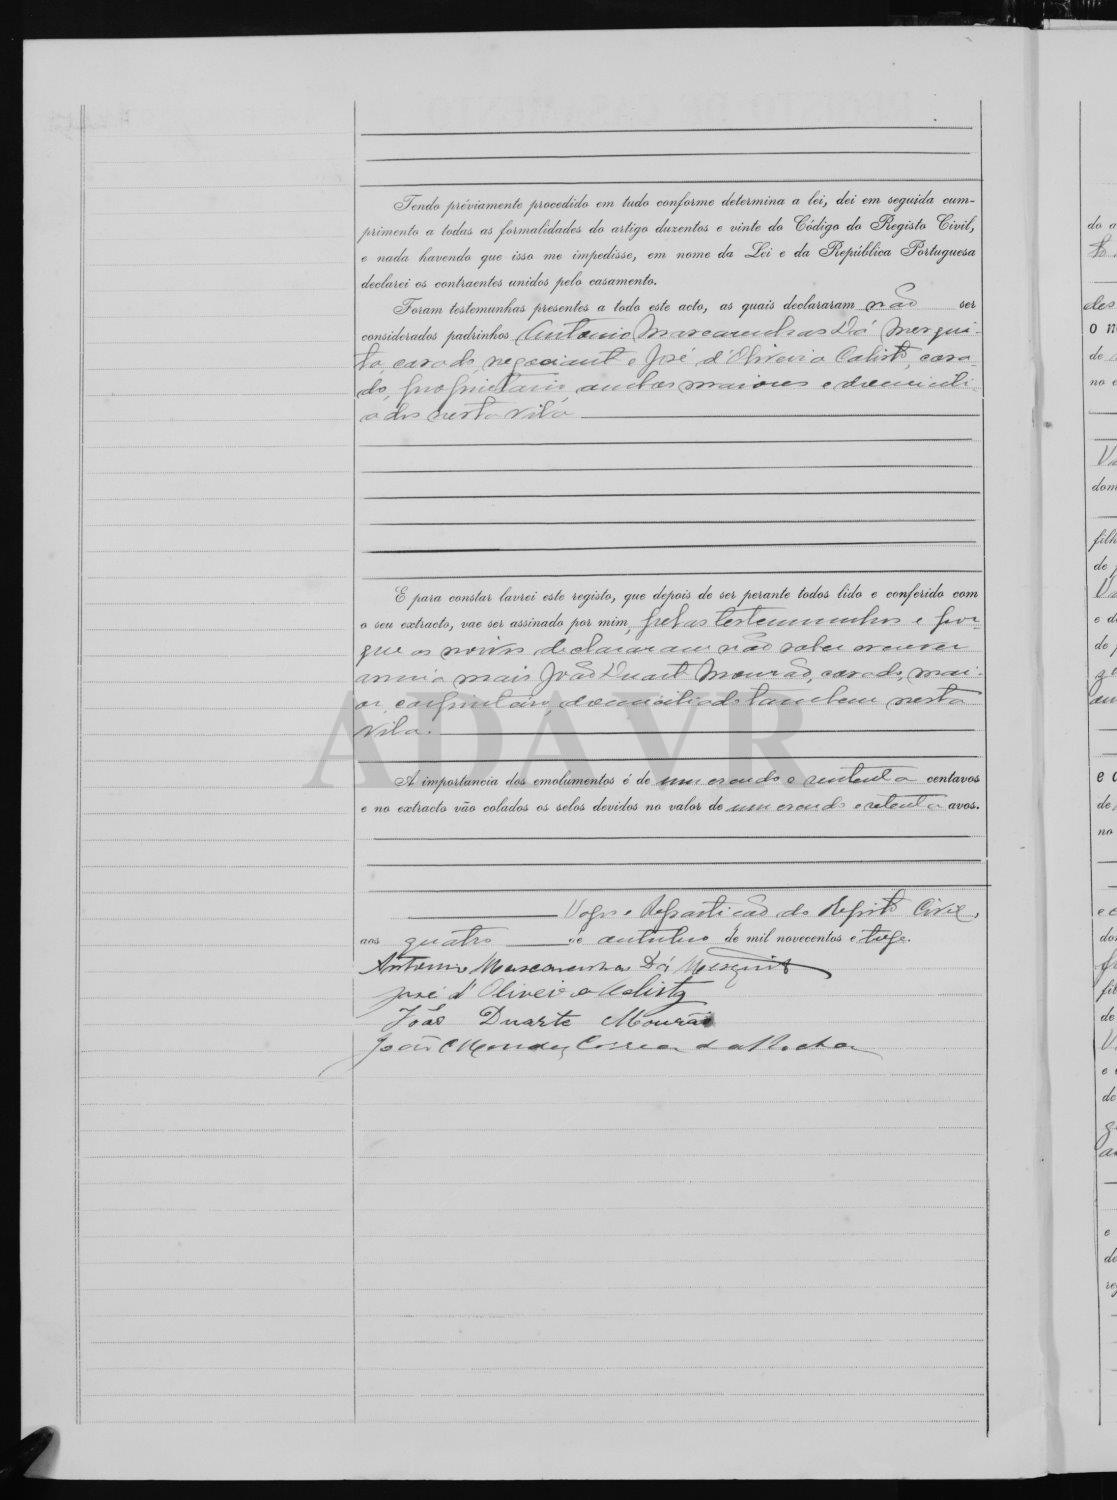 Tendo préviamente procedido em tudo conforme determina a lei, dei em seguida cum-
primento a todas as formalidades do artigo duzentos e vinte do Código do Registo Civil,
e nada havendo que isso me impedisse, em nome da Lei e da República Portuguesa
declarei os contraentes unidos pelo casamento.
Foram testemunhas presentes a todo este acto, as quais declararam não ser
considerados padrinhos Antonio Mascarenhas Dá Mesqui-
ta, casado, negociante e José d'Oliveira Calisto, casa-
do, proprietario, ambos maiores e domicili-
ados nesta vila
E para constar lavrei este registo, que depois de ser perante todos lido e conferido com
o seu extracto, vae ser assinado por mim, pelas testemunhas e por-
que os noivos declararam não saber escrever
assina mais João Duarte Mourão, casado, mai-
or, carpinteiro, domiciliado tambem nesta
vila.
A importancia dos emolumentos é de um escudo e centavos
e no extracto vão colados os selos devidos no valor de um escudo e avos.
Repartição do Registo Civil,
aos quatro de outubro de mil novecentos e treze.
Antonio Mascarenhas Dá Mesquita
José d'Oliveira Calisto
João Duarte Mourão
João Mendes Correia da Rocha
ADAVR
do a
des
o n
de
no e
dom
filh
de
e d
de
e c
de
no
e c
do
fil
de
e
de
e
de
reg